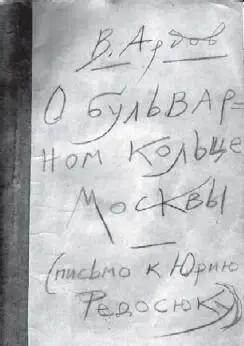 В. Ардов
О бульвар=
ном кольце
Москвы
(письмо к Юрию
Федосюку)